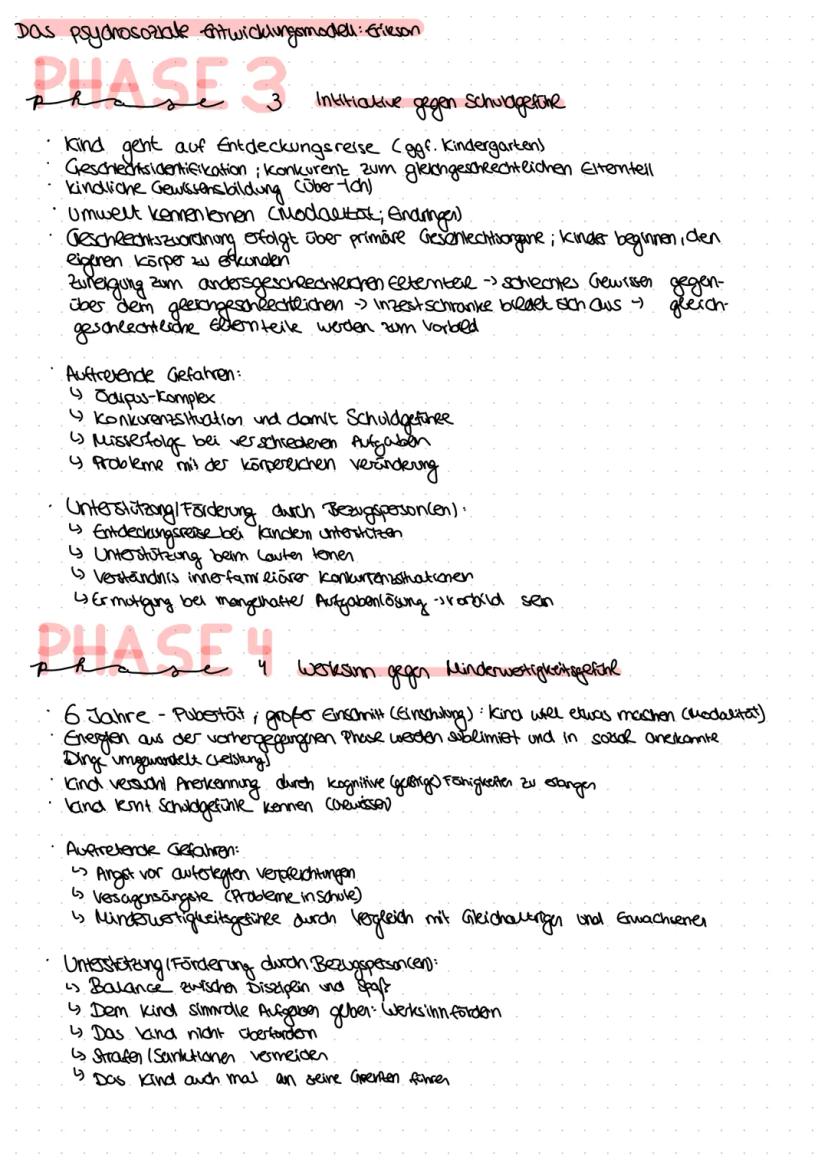 Das psychosoziale Entwicklungsmodell: Erikson
PHASE 3
phase 3 Intitiative gegen Schuldgefühl
· Kind geht auf Entdeckungsreise (ggf. Kindergarten)
· Geschlechtsidentifikation; Konkurent zum gleichgeschlechtlichen Elternteil
· kindliche Gewissensbildung (Über-Ich)
· Umwelt kennenlernen (Modalität; Eindringen)
· Geschlechtszuordnung erfolgt über primäre Geschlechtsorgane; Kinder beginnen, den
eigenen Körper zu erkunden
Zuneigung zum andersgeschlechtlichen Elternteil -> schlechtes Gewissen gegen-
über dem gleichgeschlechtlichen -> Inzestschranke bildet sich aus -> gleich-
geschlechtliche Elternteile werden zum Vorbild
· Auftretende Gefahren:
↳ Ödipus-Komplex
↳ Konkurenzsituation und damit Schuldgefühle
↳ Misserfolge bei verschiedenen Aufgaben
↳ Probleme mit der körperlichen Veränderung
· Unterstützung/Förderung durch Bezugsperson(en):
↳ Entdeckungsreise bei Kindern unterstützen
↳ Unterstützung beim Laufen lernen
↳ Verständnis innerfamiliärer Konkurrenzsituationen
↳ Ermutigung bei mangelhafter Aufgabenlösung -> Vorbild sein
PHASE 4
phase 4 Werksinn gegen Minderwertigkeitsgefühl
· 6 Jahre - Pubertät; großer Einschnitt (Einschulung): Kind will etwas machen (Modalität)
· Energien aus der vorhergegangnen Phase werden sublimiert und in sozial anerkannte
Dinge umgewandelt (Leistung)
· Kind versucht Anerkennung durch kognitive (geistige) Fähigkeiten zu erlangen
· Kind lernt Schuldgefühle kennen (Gewissen)
· Auftretende Gefahren:
↳ Angst vor auferlegten Verpflichtungen
↳ Versagensängste (Probleme in Schule)
↳ Minderwertigkeitsgefühle durch Vergleich mit Gleichaltrigen und Erwachsenen
· Unterstützung/Förderung durch Bezugsperson(en):
↳ Balance zwischen Disziplin und Spaß
↳ Dem Kind sinnvolle Aufgaben geben: Werksinn fördern
↳ Das Kind nicht überfordern
↳ Strafen/Sanktionen vermeiden
↳ Das Kind auch mal an seine Grenzen führen